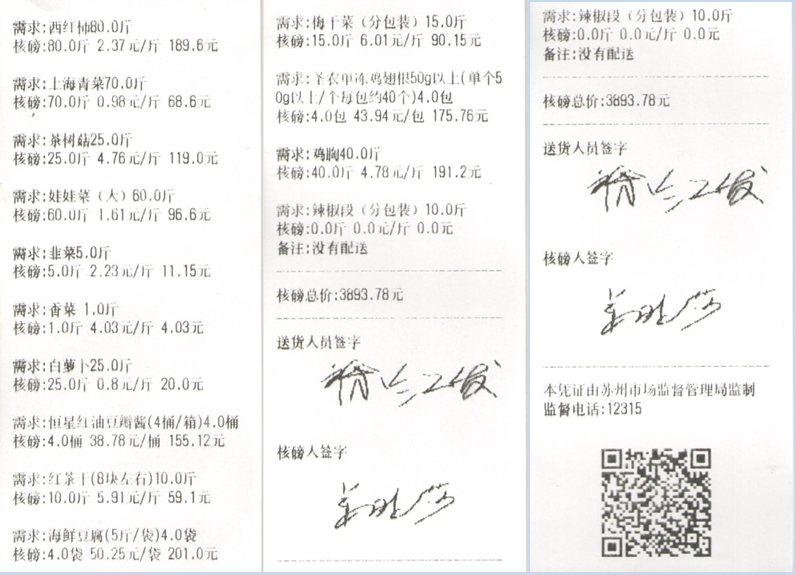 需求:西红柿80.0斤
核磅:80.0斤 2.37元/斤 189.6元
需求:上海青菜70.0斤
核磅:70.0斤 0.98元/斤 68.6元
需求:茶树菇25.0斤
核磅:25.0斤 4.76元/斤 119.0元
需求:娃娃菜（大）60.0斤
核磅:60.0斤 1.61元/斤 96.6元
需求:韭菜5.0斤
核磅:5.0斤 2.23元/斤 11.15元
需求:香菜 1.0斤
核磅:1.0斤 4.03元/斤 4.03元
需求:白萝卜25.0斤
核磅:25.0斤 0.8元/斤 20.0元
需求:恒星红油豆瓣酱(4桶/箱)4.0桶
核磅:4.0桶 38.78元/桶 155.12元
需求:红茶干(8块左右)10.0斤
核磅:10.0斤 5.91元/斤 59.1元
需求:海鲜豆腐(5斤/袋)4.0袋
核磅:4.0袋 50.25元/袋 201.0元
需求:梅干菜（分包装）15.0斤
核磅:15.0斤 6.01元/斤 90.15元
需求:圣农单冻鸡翅根50g以上(单个5
0g以上/个每包约40个)4.0包
核磅:4.0包 43.94元/包 175.76元
需求:鸡胸40.0斤
核磅:40.0斤 4.78元/斤 191.2元
需求:辣椒段（分包装）10.0斤
核磅:0.0斤 0.0元/斤 0.0元
备注:没有配送
核磅总价:3893.78元
送货人员签字
核磅人签字
需求:辣椒段（分包装）10.0斤
核磅:0.0斤 0.0元/斤 0.0元
备注:没有配送
核磅总价:3893.78元
送货人员签字
核磅人签字
本凭证由苏州市场监督管理局监制
监督电话:12315